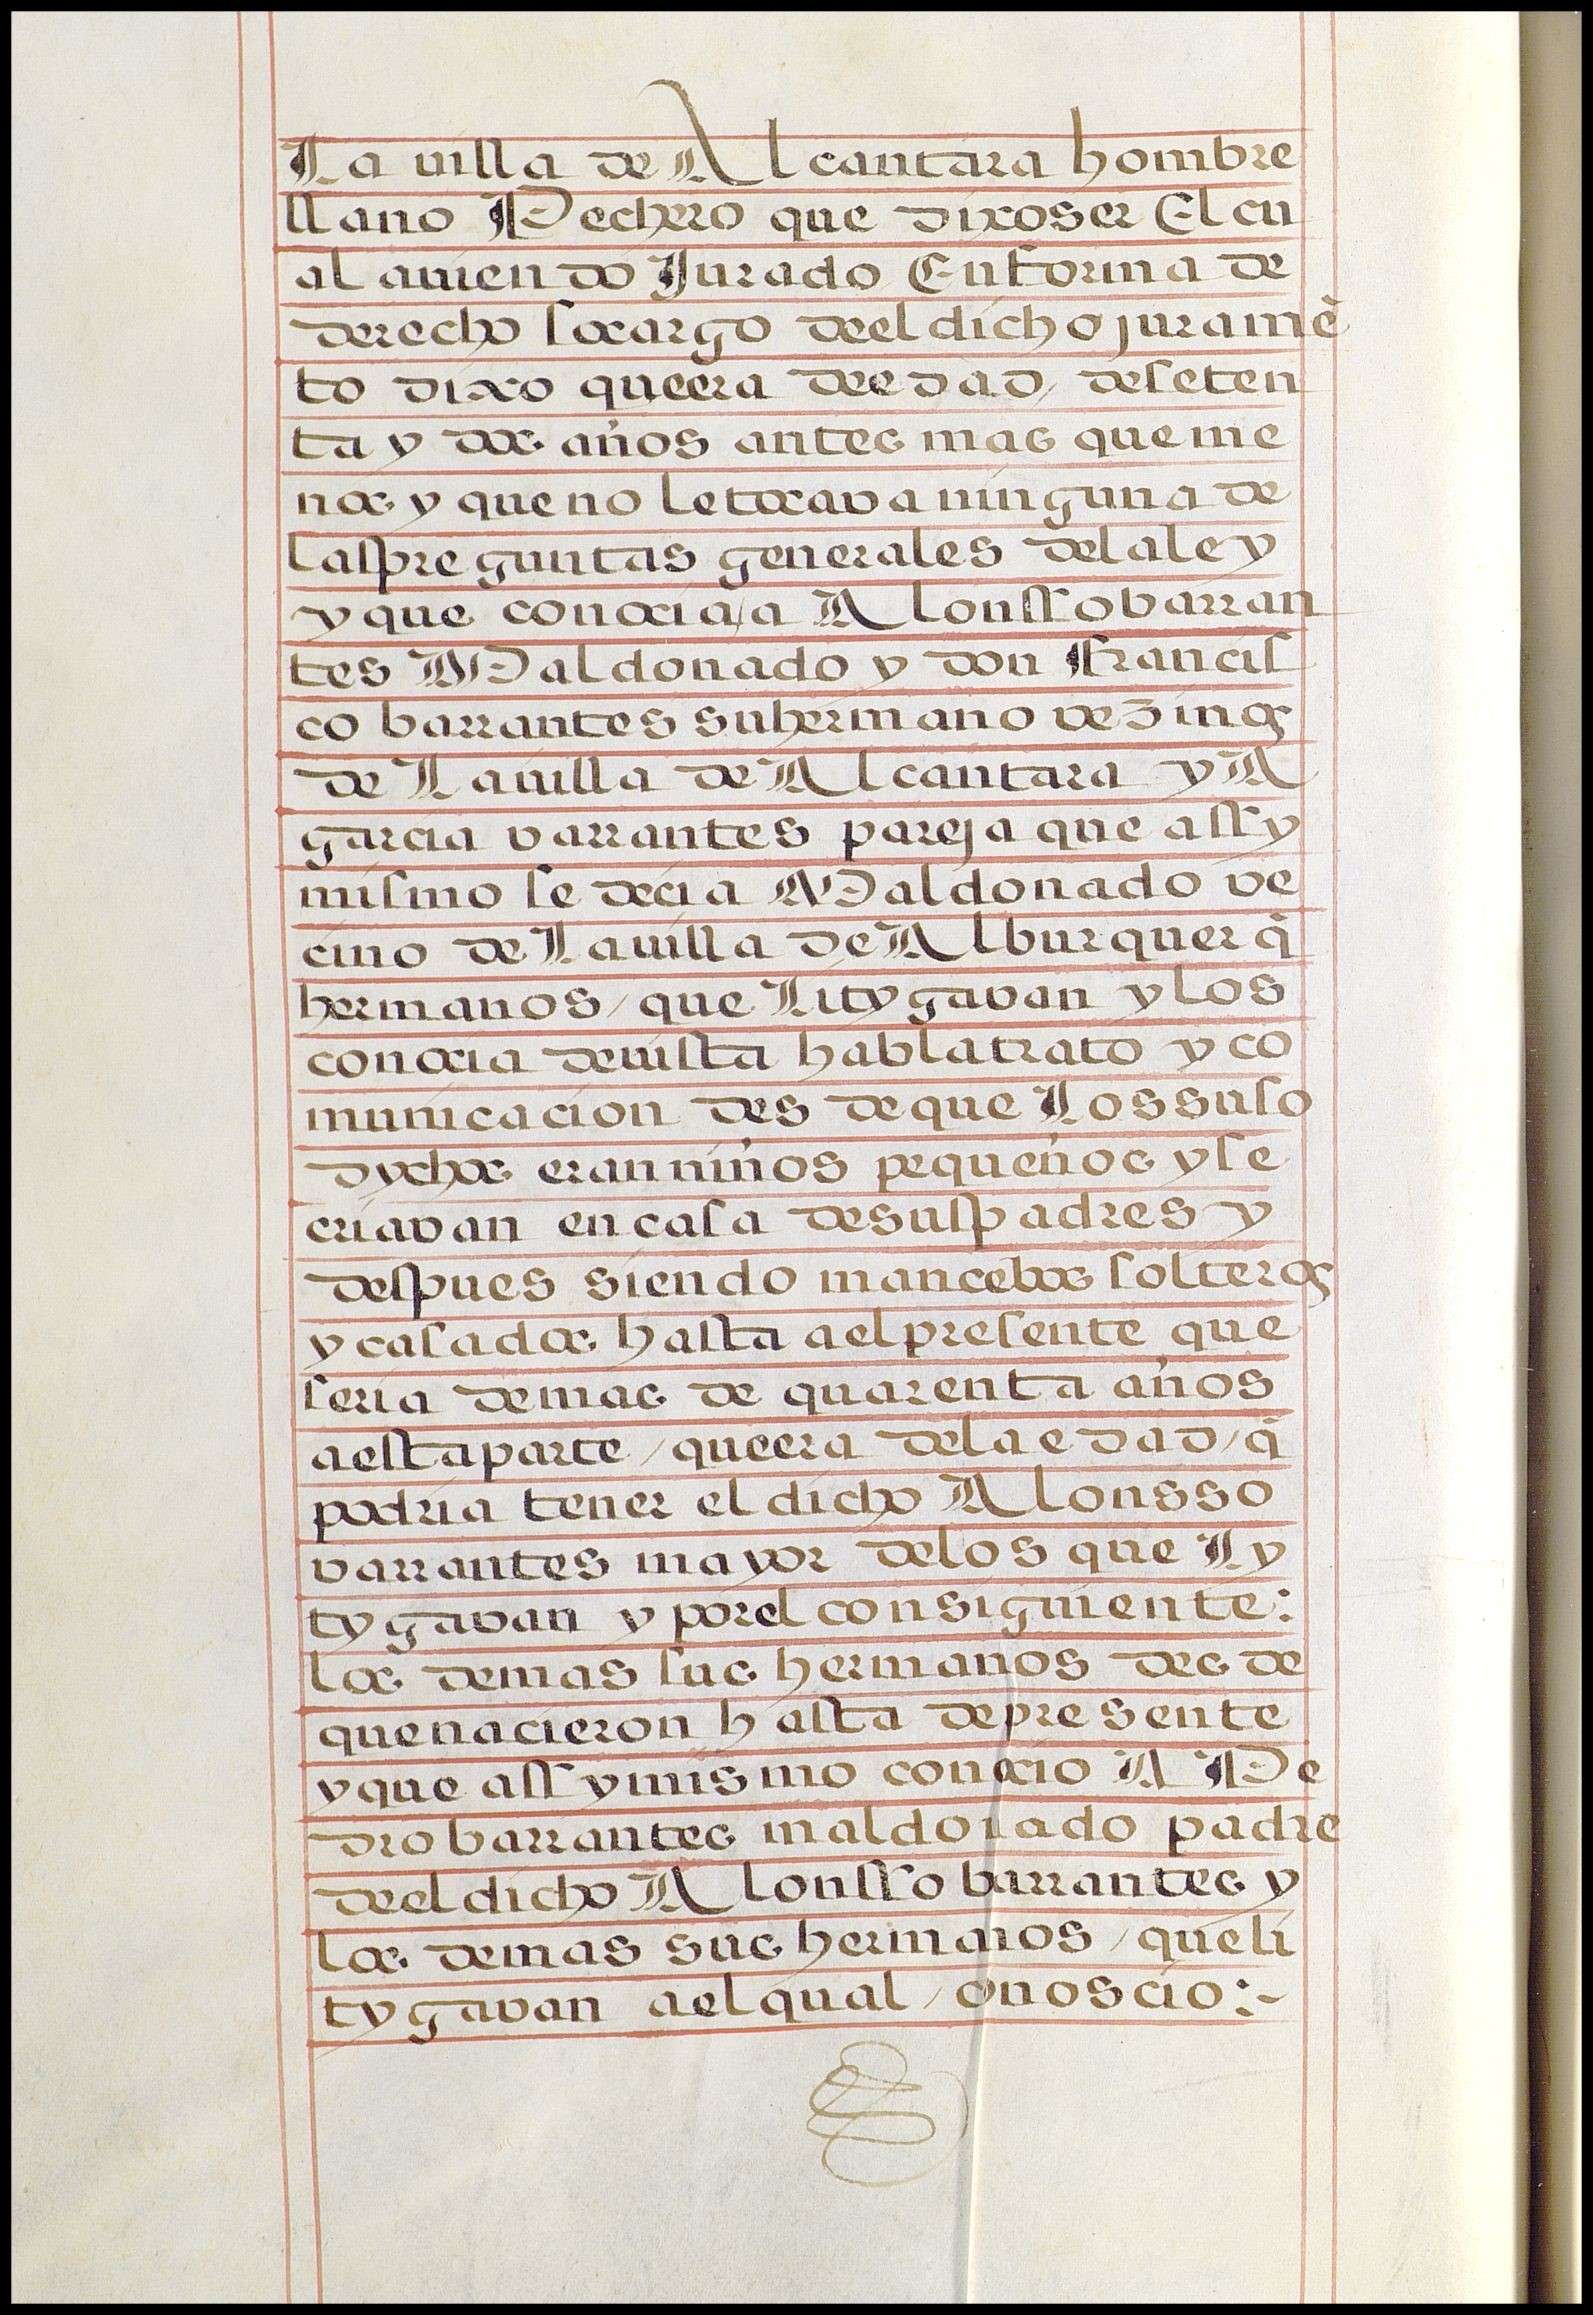 La uilla de Alcantara hombre
llano Pechero que dixo ser El cu
al auiendo Jurado En forma de
derecho so cargo de el dicho juramē
to dixo que era de edad / de seten
ta y dos años antes mas que me
nos y que no le tocava ninguna de
las preguntas generales de la ley
y que conocia / a Alonsso barran
tes Maldonado y don Francis
co barrantes su hermano vezinos
de La uilla de Alcantara y A
garcia varrantes pareja que assy
mismo se decia Maldonado ve
cino de La uilla de Alburquerq̄
hermanos / que Litygavan y los
conocia de uista habla trato y co
municacion des de que Los suso
dychos eran niños pequeños y se
criavan en casa de sus padres y
despues siendo mancebos solteros
y casados hasta a el presente que
seria de mas de quarenta años
a esta parte / que era de la edad / q̄
podria tener el dicho Alonsso
varrantes mayor de los que Ly
tygavan y por el consiguiente:
los demas sus hermanos des de
que nacieron hasta de presente
y que assy mismo conocio A Pe
dro barrantes maldonado padre
de el dicho Alonsso barrantes y
los demas sus hermanos / que li
tygavan a el qual / onoscio:-